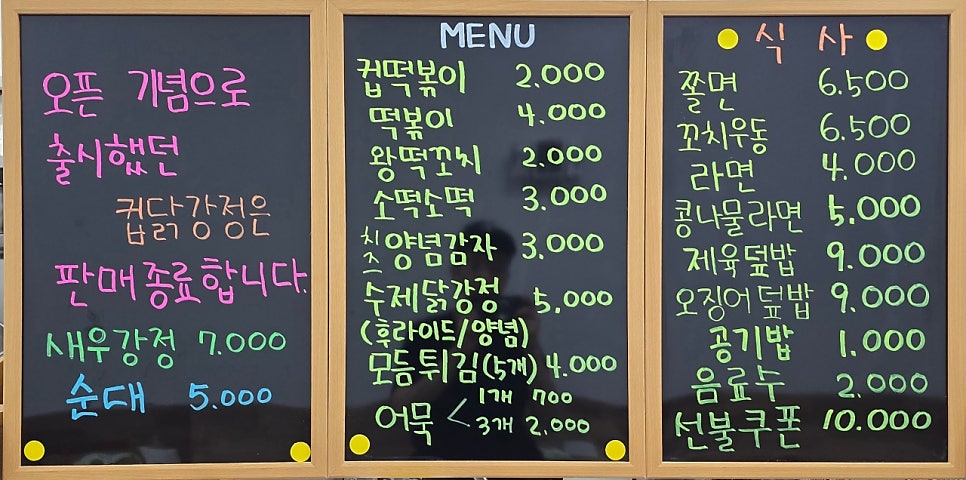 오픈 기념으로
출시했던
컵닭강정은
판매종료합니다.
새우강정 7.000
순대 5.000
MENU
컵떡볶이 2.000
떡볶이 4.000
왕떡꼬치 2.000
소떡소떡 3.000
치즈 양념감자 3.000
수제닭강정 5.000
(후라이드/양념)
모듬튀김(5개) 4.000
어묵 < 1개 700
3개 2.000
식 사
쫄면 6.500
꼬치우동 6.500
라면 4.000
콩나물라면 5.000
제육덮밥 9.000
오징어덮밥 9.000
공기밥 1.000
음료수 2.000
선불쿠폰 10.000